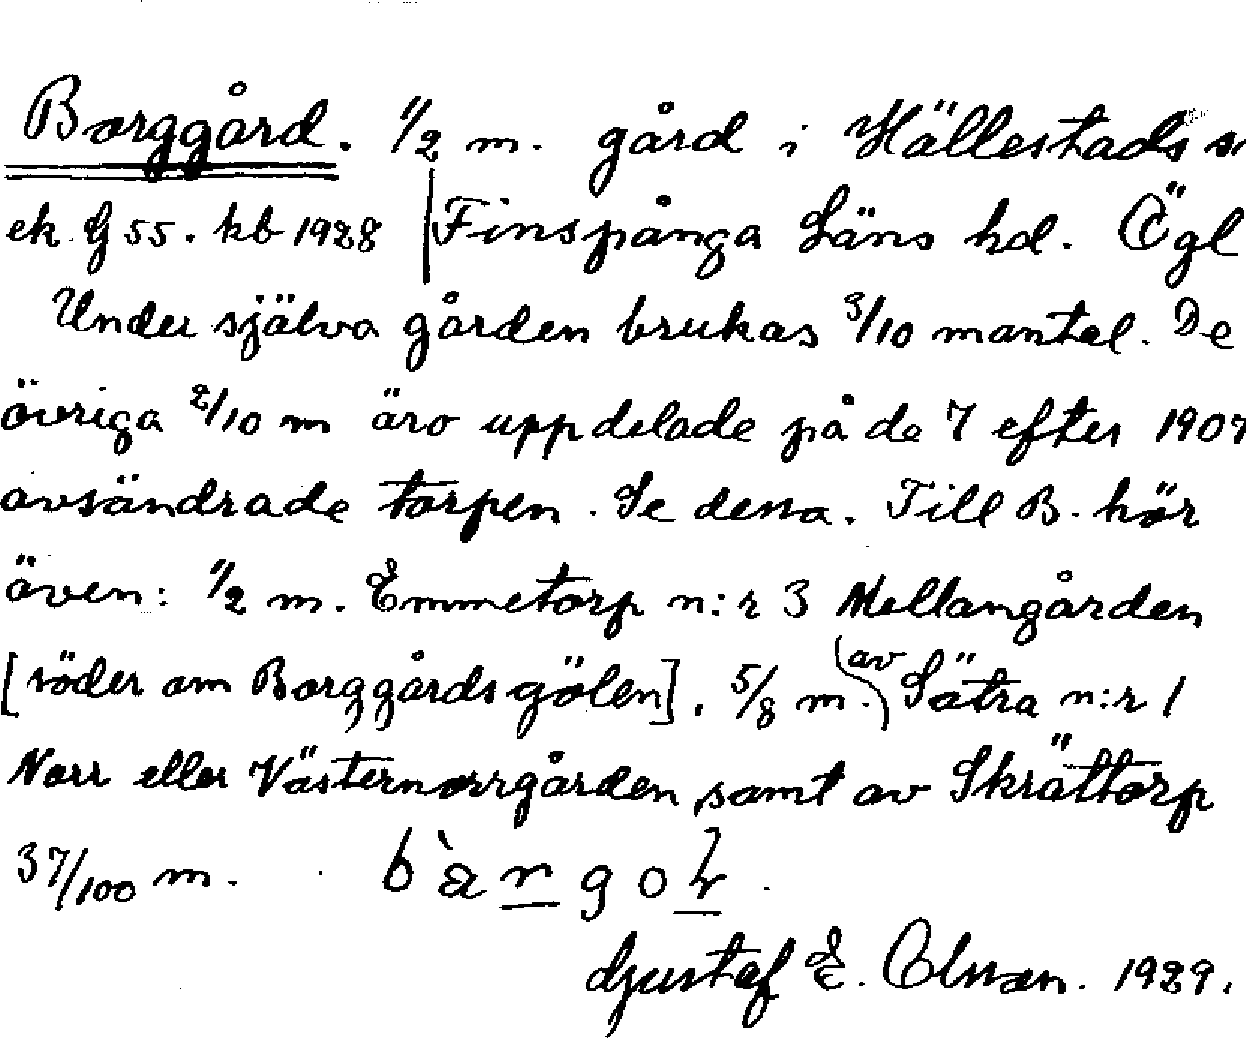 Borggård. 1/2 m. gård i Hällestads s
ek. G 55. kb 1928 | Finspånga Läns hd. Ögl
Under själva gården brukas 3/10 mantal. De
övriga 2/10 m äro uppdelade på de 7 efter 1907
avsöndrade torpen. Se dessa. Till B. hör
även: 1/2 m. Emmetorp n:r 3 Mellangården
[söder om Borggårdsgölen], 5/8 m. av Sätra n:r 1
Norr eller Västernorrgården, samt av Skrättorp
37/100 m.
Gustaf E. Olsson. 1929.